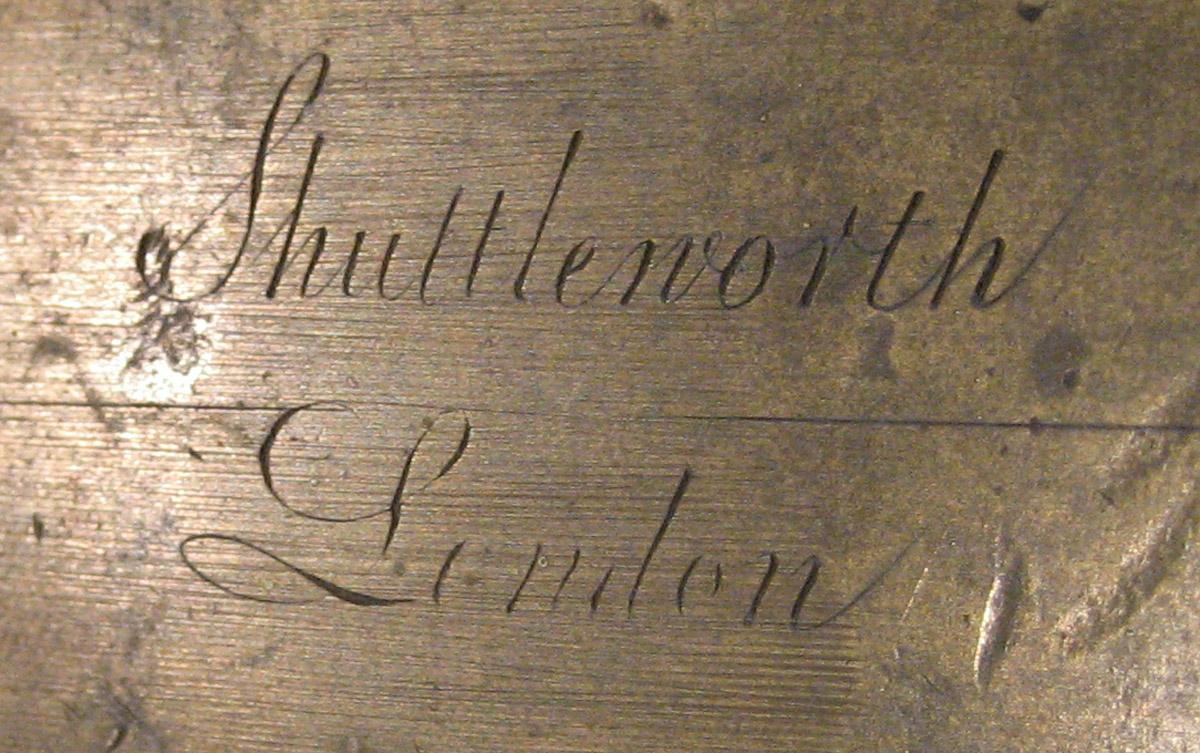 Shuttleworth
London